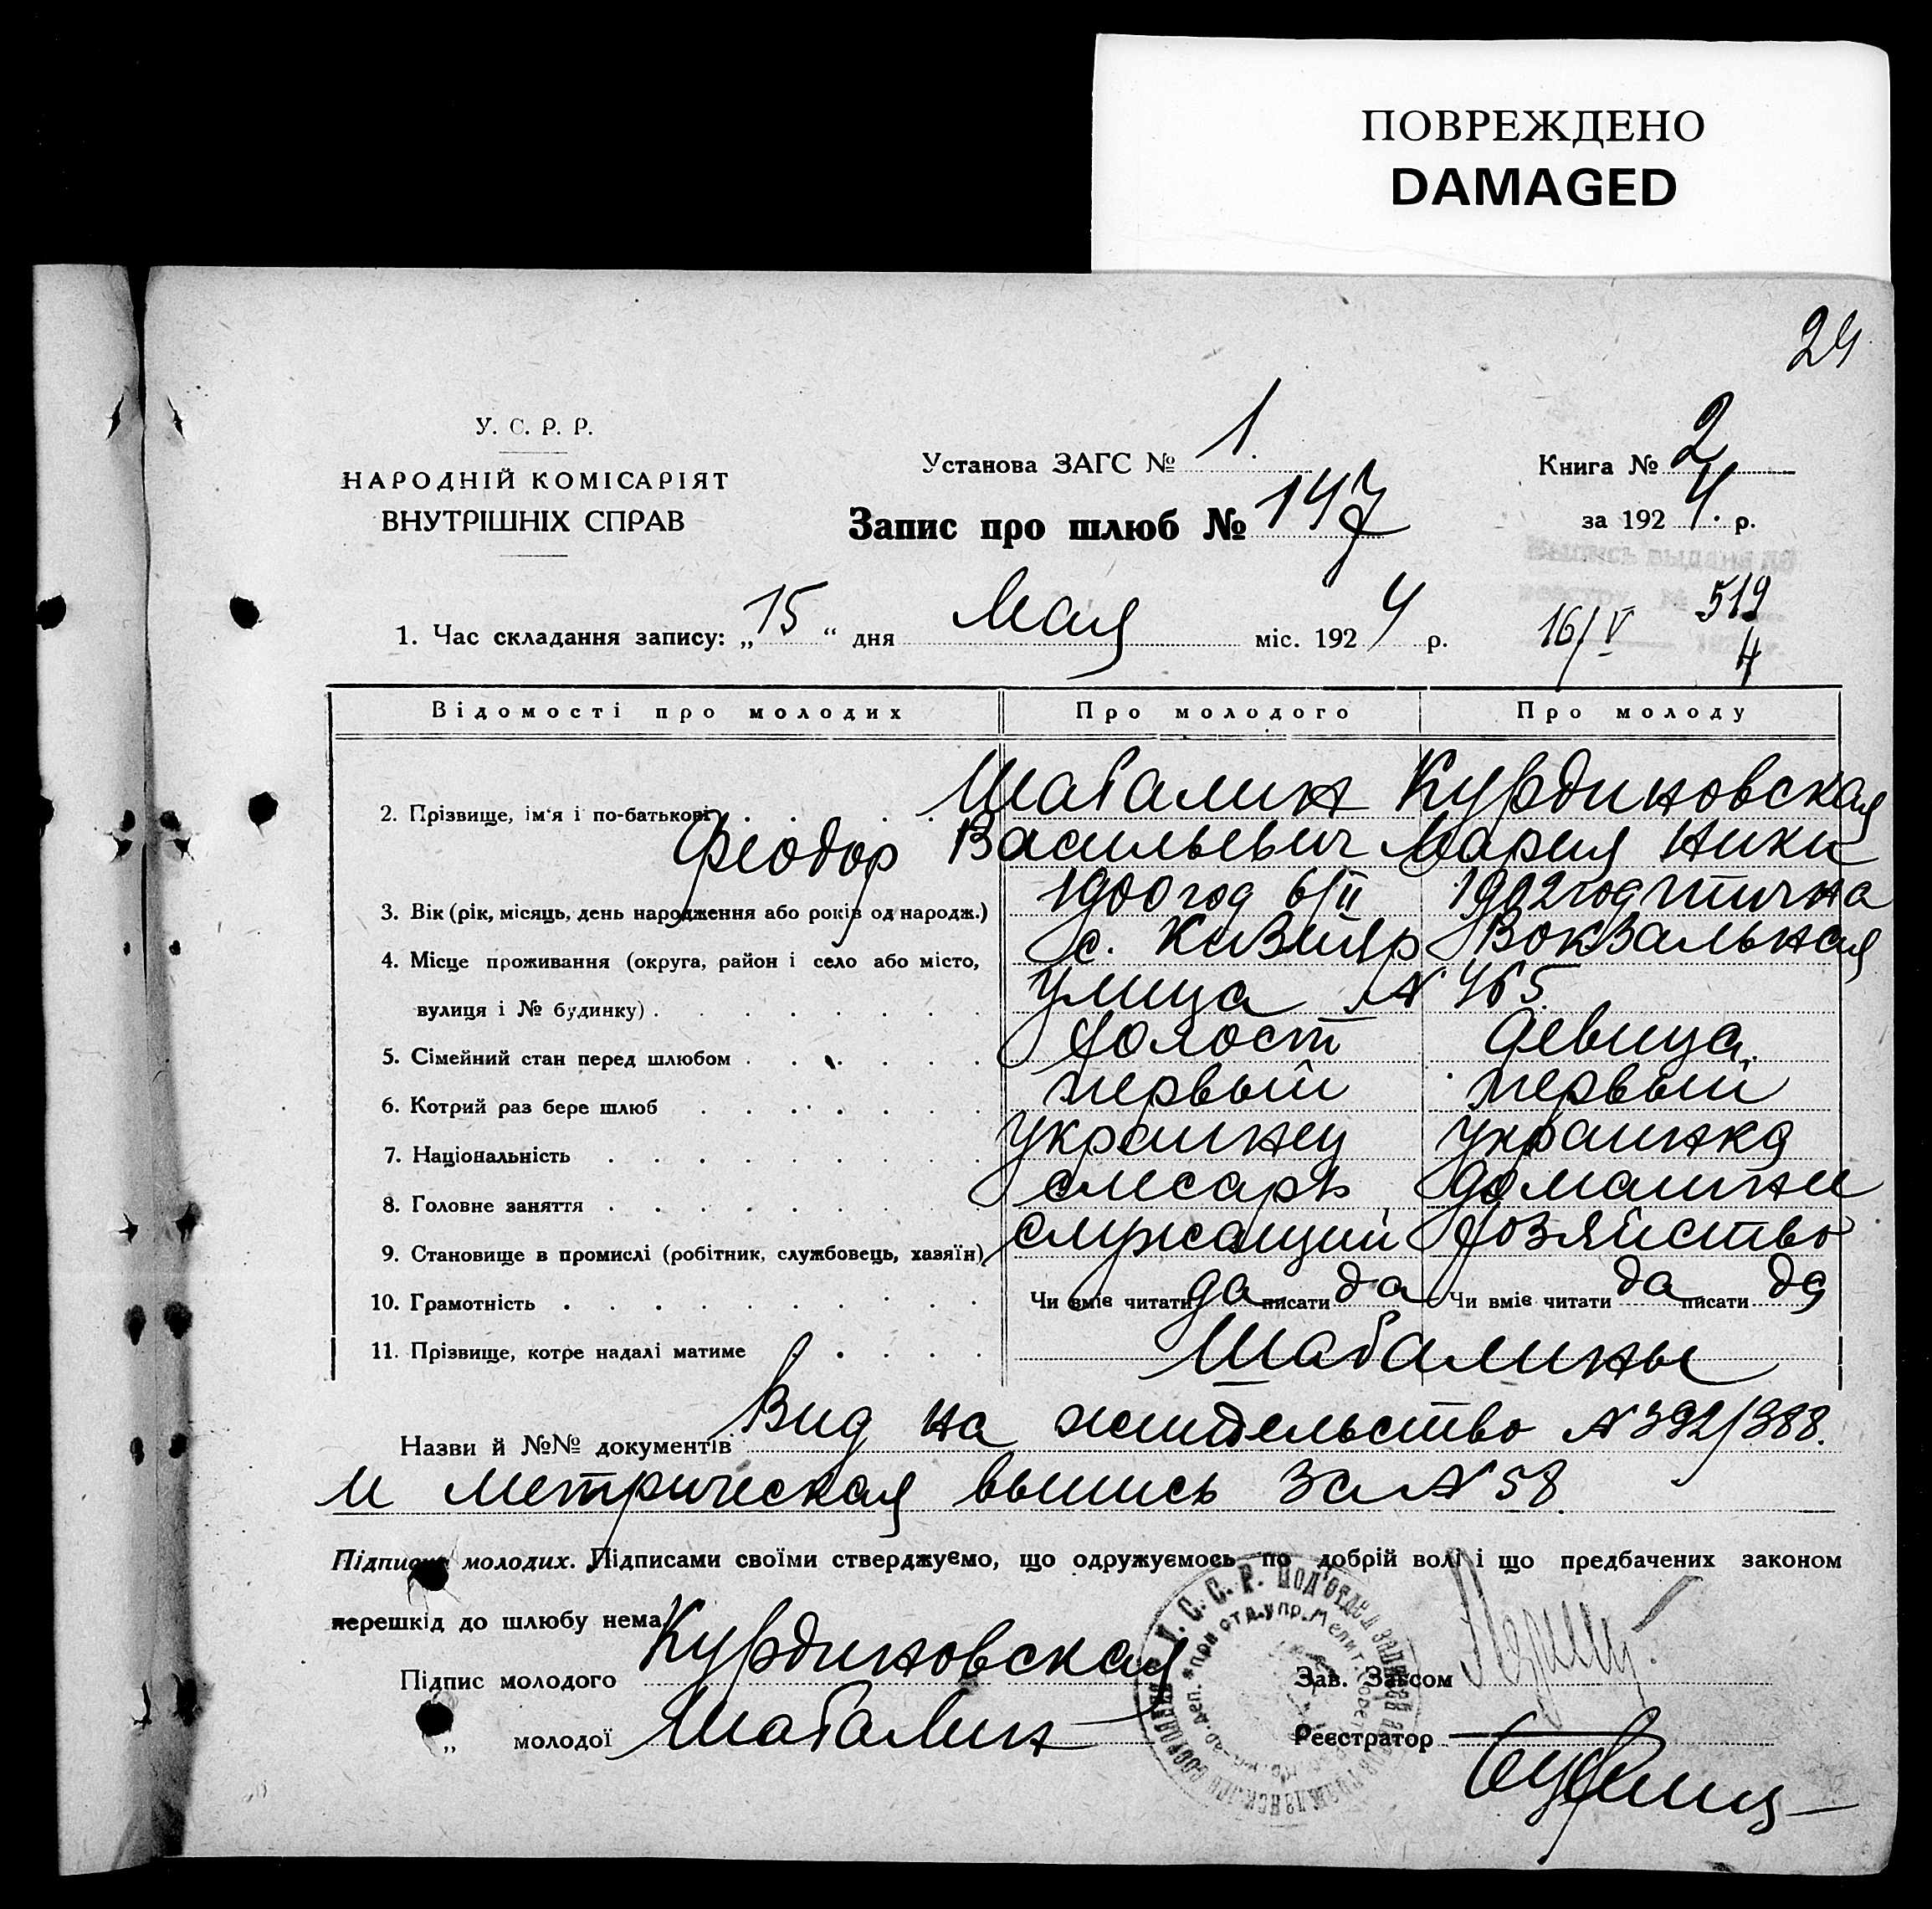 ПОВРЕЖДЕНО
DAMAGED
24
У. С. Р. Р.
НАРОДНІЙ КОМІСАРІЯТ
ВНУТРІШНІХ СПРАВ
Установа ЗАГС № 1.
Книга № 2
Запис про шлюб № 147
за 1924. р.
Выпись выдана
519
1. Час складання запису: „15“ дня Мая міс. 1924 р.
16/V 4
Відомості про молодих Про молодого Про молоду
2. Прізвище, ім'я і по-батькові Шабалин Курдиновская
Феодор Васильевич Мария Ники
3. Вік (рік, місяць, день народження або років од народж.) 1900 год 6/II 1902 год тична
4. Місце проживання (округа, район і село або місто, с. Кизияр Вокзальная
вулиця і № будинку) улица № 465
5. Сімейний стан перед шлюбом холост девица.
6. Котрий раз бере шлюб первый первый
7. Національність украинец украинка
8. Головне заняття слесарь домашнее
9. Становище в промислі (робітник, службовець, хазяїн) служащий хозяйство
10. Грамотність Чи вміє читати да писати да Чи вміє читати да писати да
11. Прізвище, котре надалі матиме Шабалины
Назви й №№ документів Вид на жительство № 392/388.
и метрическая выпись за № 58
Підписи молодих. Підписами своїми стверджуємо, що одружуємось по добрій волі і що предбачених законом
перешкід до шлюбу нема.
Підпис молодого Курдиновская
Зав. Загсом
„ молодої Шабалин
Реєстратор
У. С. С. Р. Под'отдел записей актов гражданск. состояния
при отд. упр. Мелит.